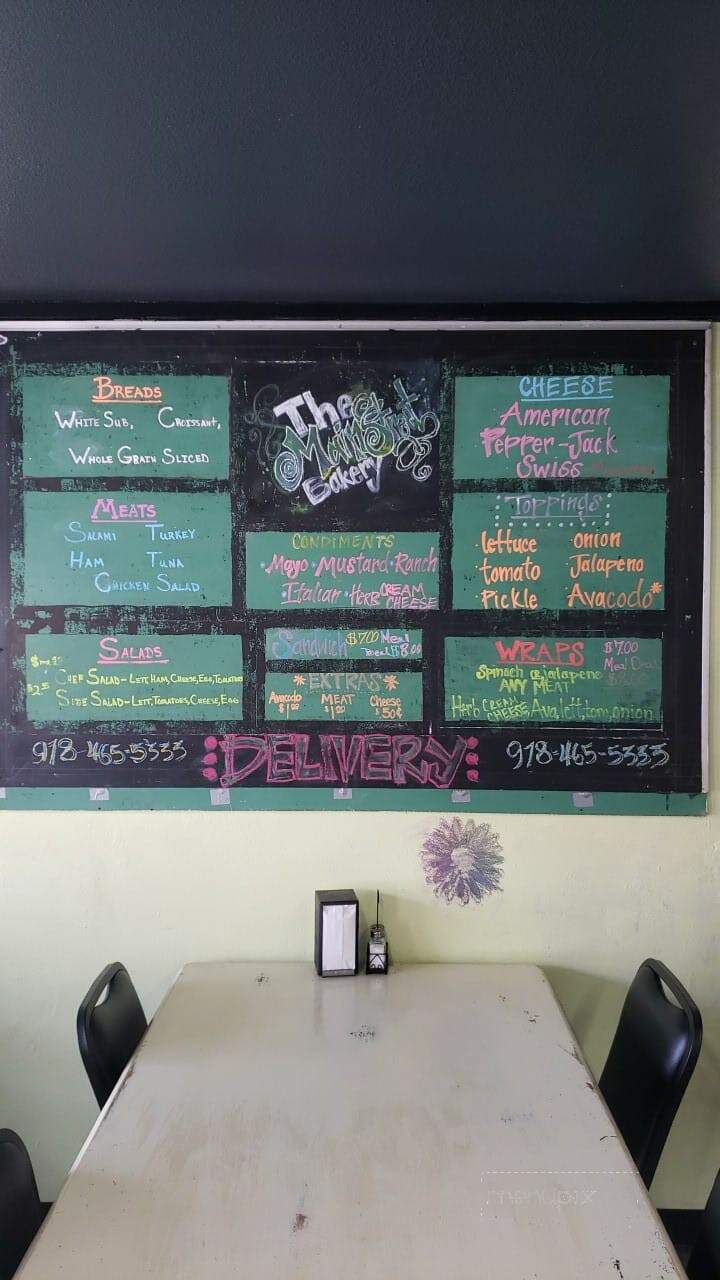 BREADS
WHITE SUB, CROISSANT,
WHOLE GRAIN SLICED
MEATS
SALAMI TURKEY
HAM TUNA
CHICKEN SALAD
SALADS
CHEF SALAD-LETT, HAM, CHEESE, EGG, TOMATOES
SIDE SALAD-LETT, TOMATOES, CHEESE, EGG
The
Main Street
Bakery
CONDIMENTS
Mayo Mustard Ranch
Italian Herb CREAM CHEESE
Sandwich $7.00 Meal Deal $8.00
*EXTRAS*
Avacado MEAT Cheese
$1.00 $1.00 50¢
CHEESE
American
Pepper-Jack
SWISS
Toppings
lettuce onion
tomato Jalapeno
Pickle Avacodo*
WRAPS $7.00
Meal Deal
Spinach or Jalapeno
ANY MEAT
Herb CREAM CHEESE Ava, lett, tom, onion
978-465-5333 DELIVERY 978-465-5333
menupix